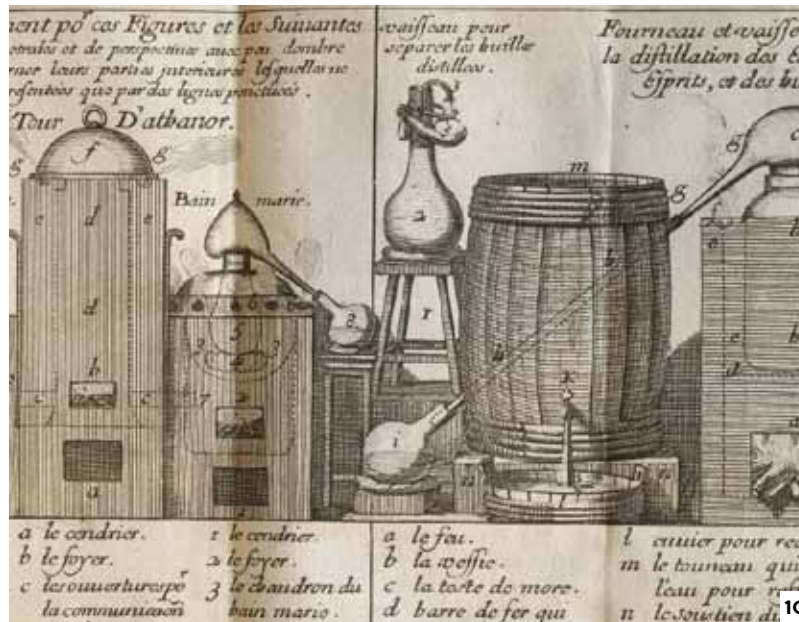 ent po^r ces Figures et les Suiuantes
et de perspectiue auec peu dombre
leurs parties interieures lesquelles ne
que par des lignes ponctuées.
Tour D'athanor.
Bain marie.
vaisseau pour
separer les huilles
distillees.
Fourneau et vaisse
la distillation des
Esprits, et des hu
g
f
g
e
d
e
d
b
c
c
a
6
5
4
3
7
8
2
1
m
g
g
h
h
k
i
l
n
n
c
b
e
d
a le cendrier.
b le foyer.
c les ouuertures po^r
la communication
1 le cendrier.
2 le foyer.
3 le chaudron du
bain marie.
a le feu.
b la vessie.
c la teste de more.
d barre de fer qui
l cuuier pour rec
m le tonneau qui
l'eau pour
n le soustien du
10